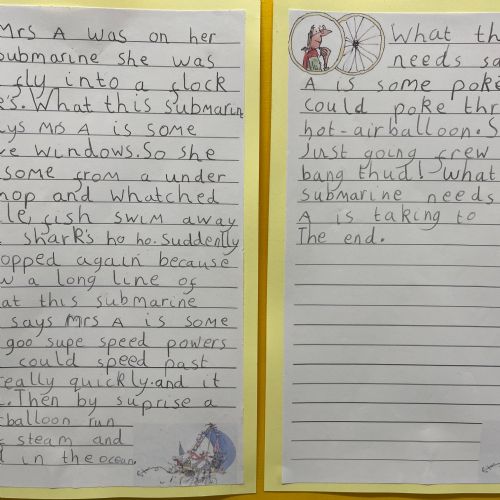 Mrs A was on her
submarine she was
fly into a flock
What this submarin
says Mrs A is some
windows. So she
some from a under
and whatched
fish swim away
shark's ho ho. Suddenly
again because
a long line of
this submarine
says Mrs A is some
goo supe speed powers
could speed past
really quickly. and it
Then by suprise a
balloon run
steam and
in the ocean.
What th
needs sa
A is some poke
could poke thr
hot-air balloon. S
Just going crew
bang thud! What
submarine needs
A is taking to
The end.